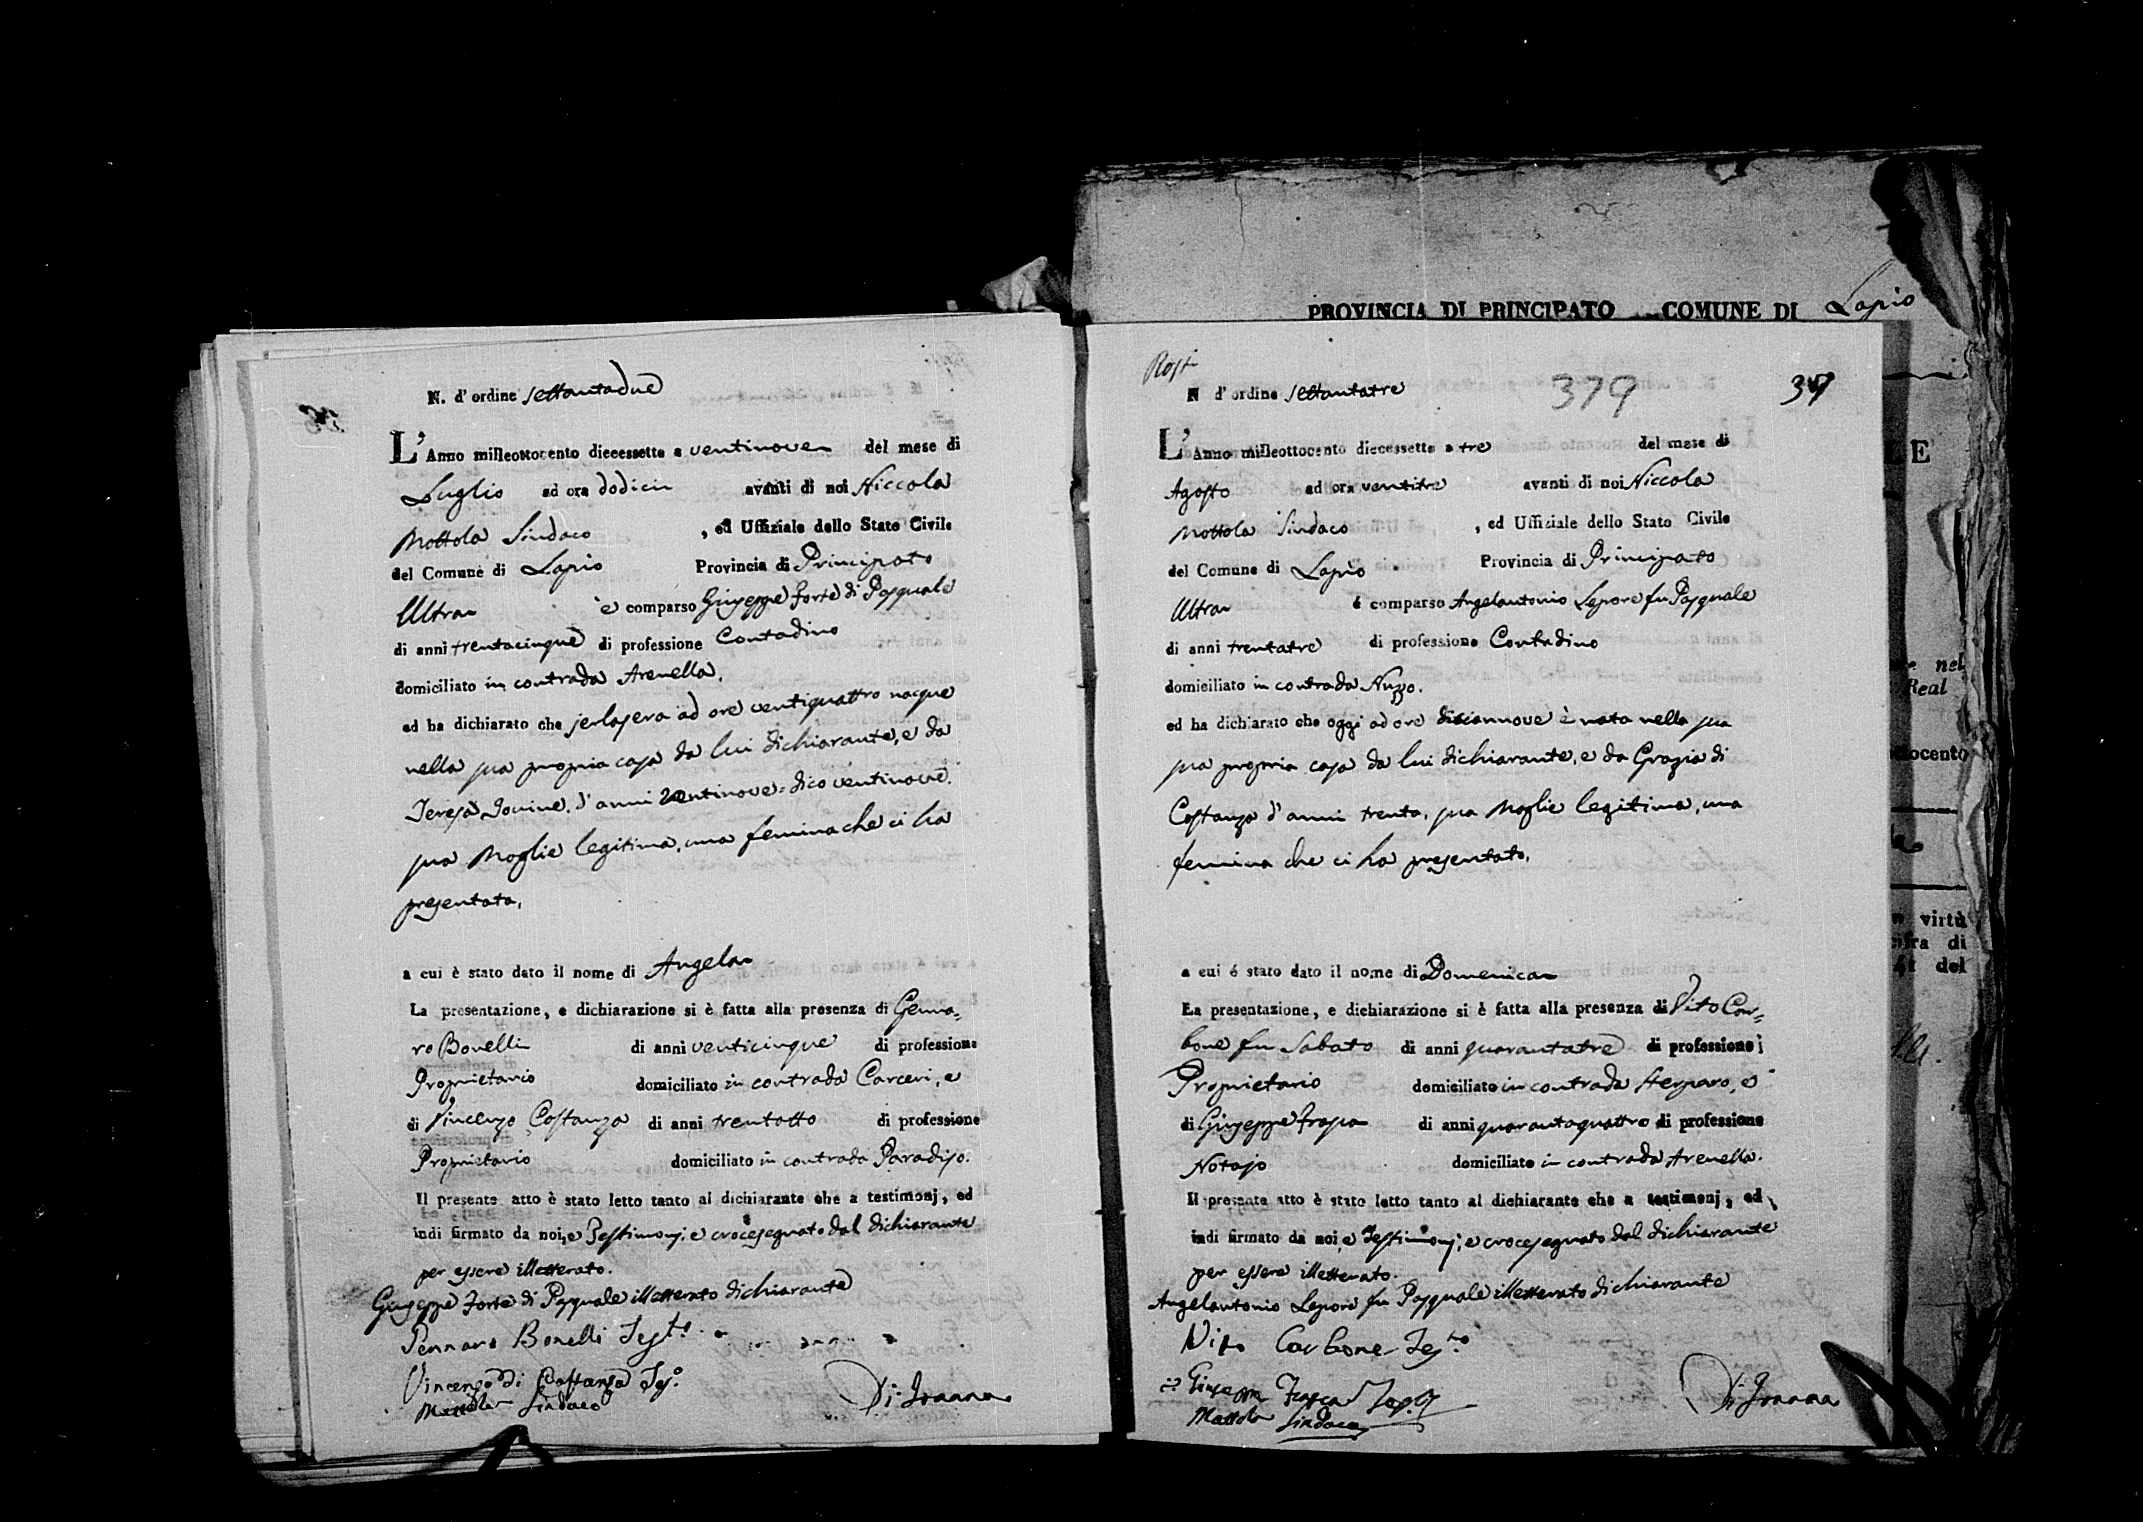 N. d'ordine settantadue
L'Anno milleottocento diecessette a ventinove del mese di
Luglio ad ora dodici avanti di noi Niccola
Mottola Sindaco , ed Uffiziale dello Stato Civile
del Comune di Lapio Provincia di Principato
Ultra è comparso Giuseppe Forte di Pasquale
di anni trentacinque di professione Contadino
domiciliato in contrada Arenella.
ed ha dichiarato che jerlasera ad ore ventiquattro nacque
nella sua propria casa da lui dichiarante, e da
Teresa Iovine d'anni ventinove = dico ventinove.
sua Moglie legitima, una femina che ci ha
presentata,
a cui è stato dato il nome di Angela
La presentazione, e dichiarazione si è fatta alla presenza di Genna=
ro Bonelli di anni venticinque di professione
Proprietario domiciliato in contrada Carceri, e
di Vincenzo Costanza di anni trentotto di professione
Proprietario domiciliato in contrada Paradiso.
Il presente atto è stato letto tanto al dichiarante che a testimonj, ed
indi firmato da noi, e Testimonj, e crocesegnato dal dichiarante
per essere illetterato.
Giuseppe Forte di Pasquale illetterato dichiarante
Gennaro Bonelli Test.o
Vincenzo di Costanza Tes.o
Mottola Sindaco
Di Joanna
PROVINCIA DI PRINCIPATO COMUNE DI Lapio
N d'ordine settantatre 379 37
L'Anno milleottocento diecessette a tre del mese di
Agosto ad ora ventitre avanti di noi Niccola
Mottola Sindaco , ed Uffiziale dello Stato Civile
del Comune di Lapio Provincia di Principato
Ultra é comparso Angelantonio Lepore fu Pasquale
di anni trentatre di professione Contadino
domiciliato in contrada Nuzzo.
ed ha dichiarato che oggi ad ore diciannove è nata nella sua
sua propria casa da lui dichiarante, e da Grazia di
Costanzo d'anni trenta, sua Moglie legitima, una
femina che ci ha presentato,
a cui é stato dato il nome di Domenica
La presentazione, e dichiarazione si è fatta alla presenza di Vito Car=
bone fu Sabato di anni quarantatre di professione
Proprietario domiciliato in contrada Sterparo, e
di Giuseppe Frasca di anni quarantaquattro di professione
Notajo domiciliato in contrada Arenella.
Il presente atto è stato letto tanto al dichiarante che a testimonj, ed
indi firmato da noi, e Testimonj, e crocesegnato dal dichiarante
per essere illetterato.
Angelantonio Lepore fu Pasquale illetterato dichiarante
Vito Carbone Tes.to
Giuseppe Frasca
Mottola Sindaco
Di Joanna
nel
Real
virtù
di
del